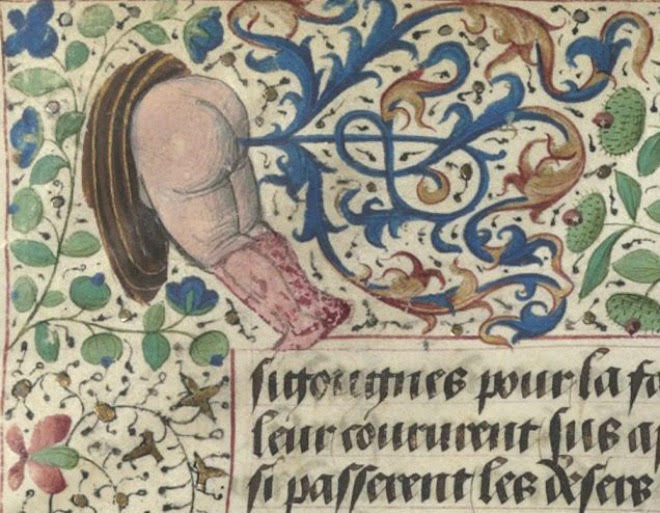 sigongnes pour la fa
leur coururent sus ap
si passerent les desers